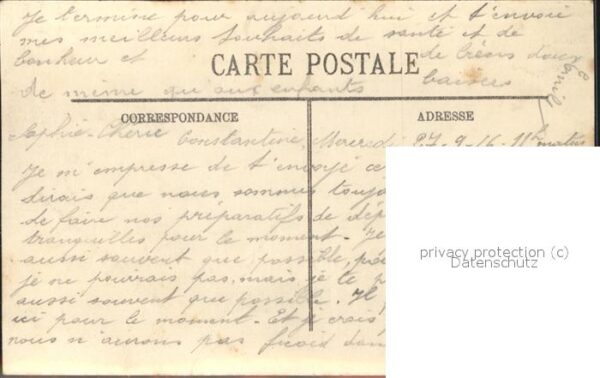 Je termine pour aujourd'hui et t'envoie
mes meilleurs souhaits de santé et de
bonheur et de
CARTE POSTALE
de même que aux enfants baisers
CORRESPONDANCE
ADRESSE
Sophie Chérie Constantine, Mercredi 27-9-16. 11h matin
Je m'empresse de t'envoyé
dirais que nous sommes toujo
de faire nos préparatifs de dép
tranquilles pour le moment. Je
aussi souvent que possible,
je ne pourrais pas, mais je le
aussi souvent que possible. Il
ici pour le moment. Et je crois
nous n'aurons pas froid dans
privacy protection (c)
Datenschutz